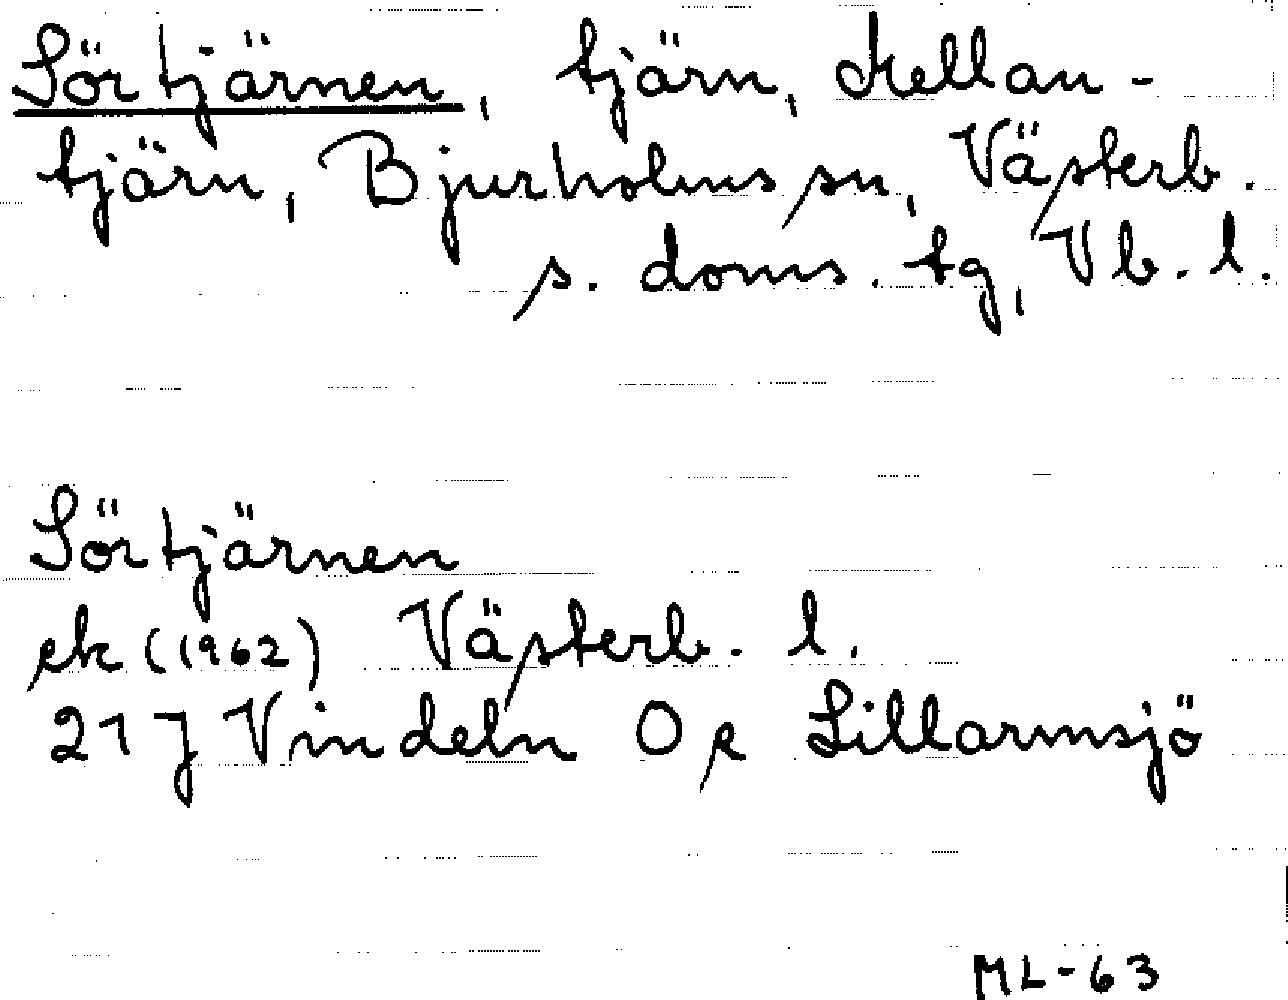 Sörtjärnen, tjärn, Mellan-
tjärn, Bjurholms sn, Västerb.
s. doms. tg, Vb. l.
Sörtjärnen
ek (1962) Västerb. l.
21 J Vindeln 0 e Lillarmsjö
ML-63